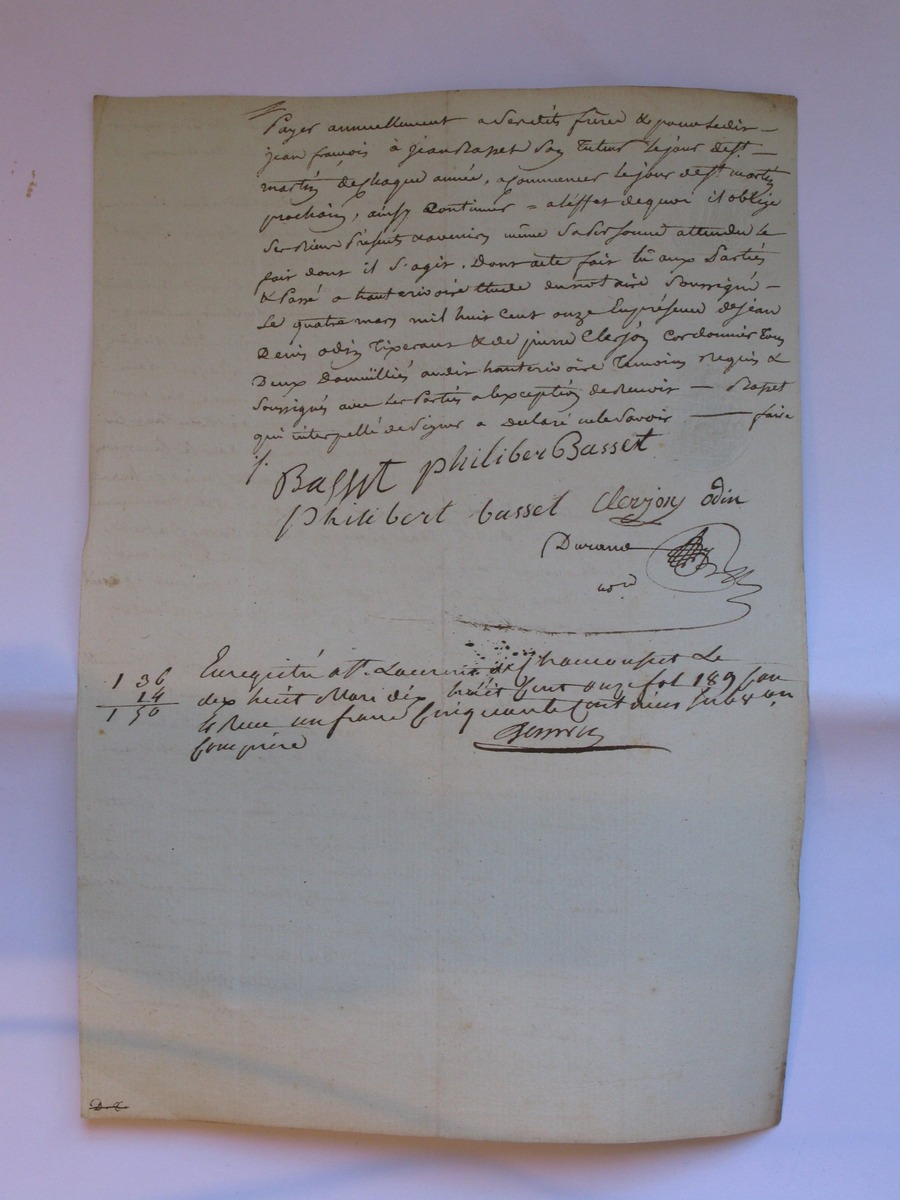 Payer annuellement a Sesdits frères & pour ledit —
jean françois à jean Rapet Son tuteur le jour de St —
martin de Chaque année, a Commencer le jour de St martin
prochain, ainsy Continuer = a l'effet de quoi il oblige
Ses Biens Présents & avenirs même Sa personne attendu le
fait dont il S'agit. Dont acte fait lû aux Parties
& Passé a hauterivoire Etude du notaire Soussigné —
Le quatre mars mil huit Cent onze En présence de jean
Denis odin Tixerant & de pierre Clerjon Cordonnier tous
Deux Domiciliés audit hauterivoire Temoins requis &
Soussignés avec Les Parties a l'exception de — Rapet
qui interpellé de Signer a Declaré ne le Savoir — faire
Basset philiber Basset
philibert basset Clerjon odin
Durand
nore
Enregistré a St Laurent de Chamousset Le
1 36
dix huit Mars dix huit Cent onze fol 189
14
Reçu un franc Cinquante Centimes
1 50
Compris